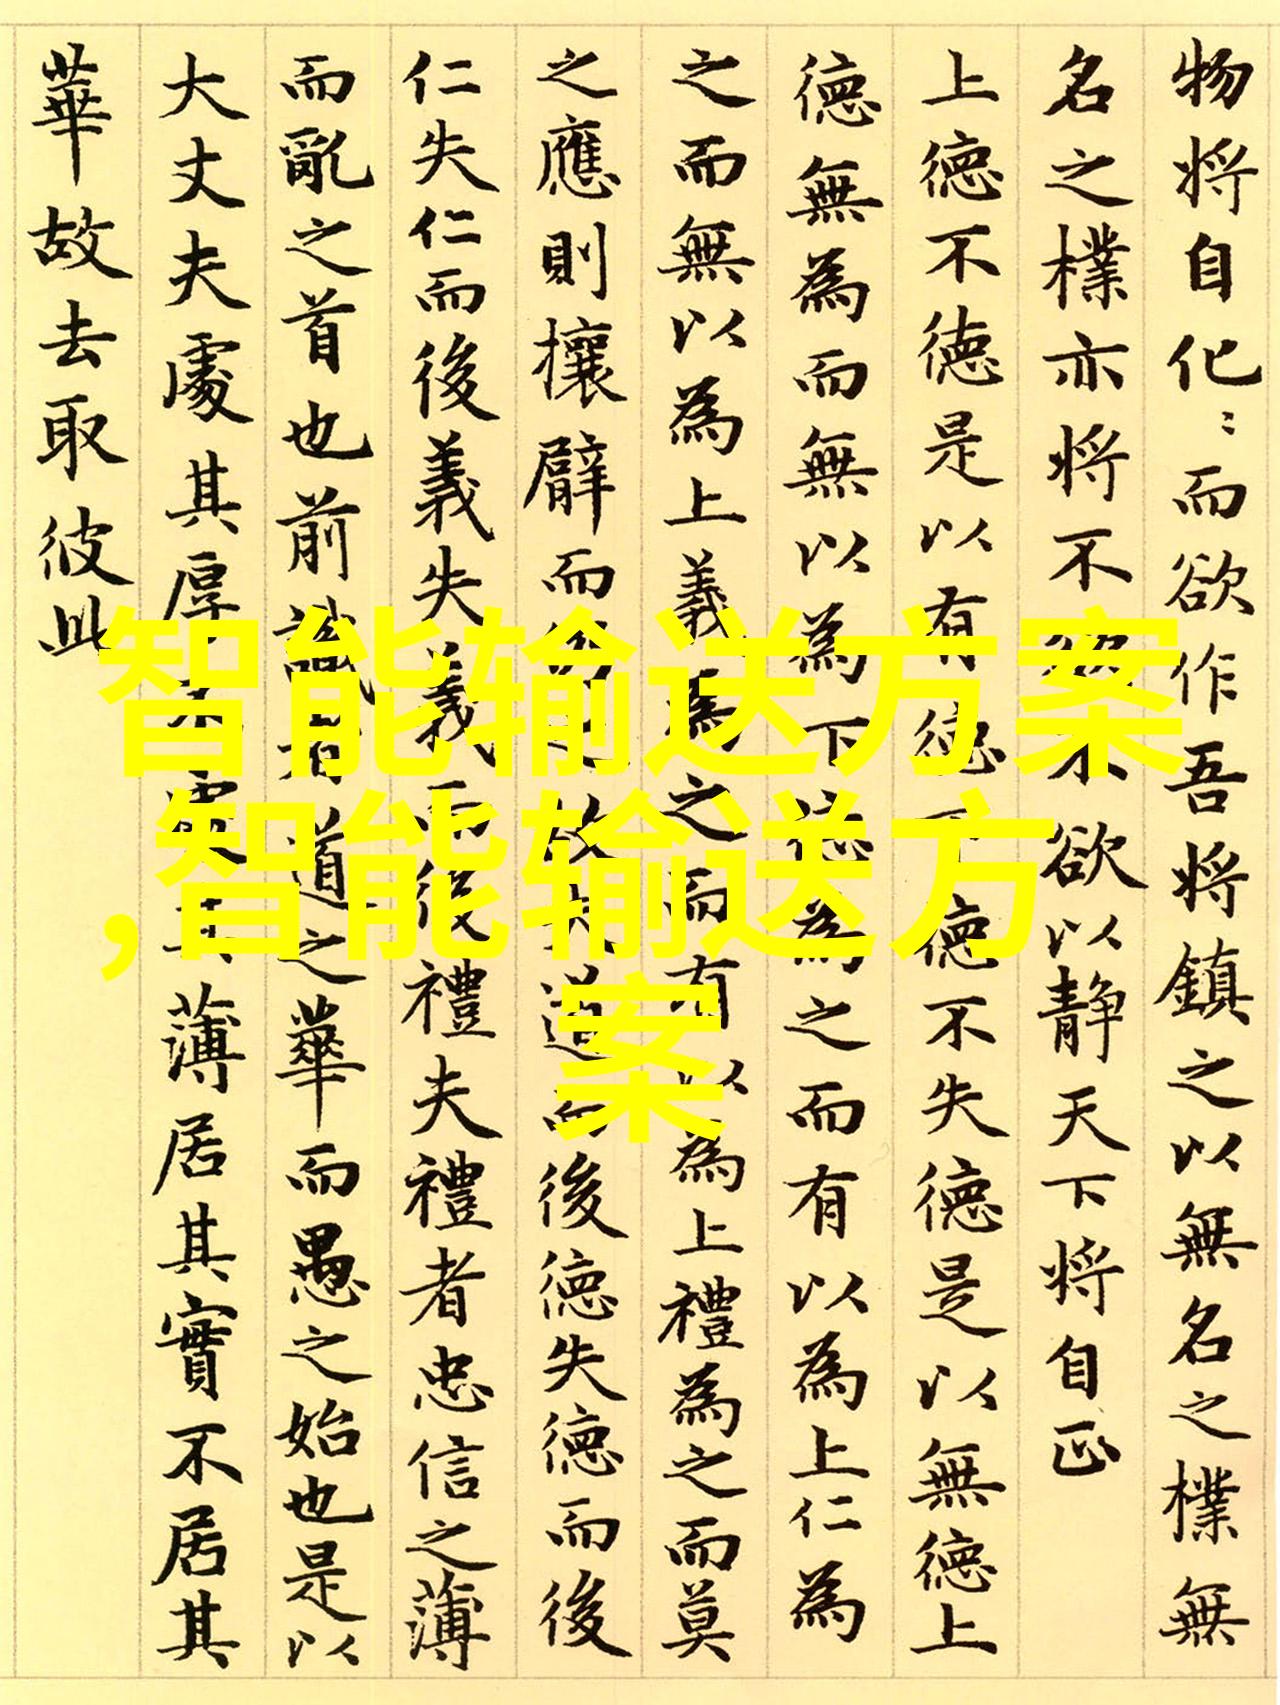 物将自化〻而欲作吾将鎮之以無名之樸無
名之樸亦将不欲不欲以静天下将自正
上德不德是以有德下德不失德是以無德上
德無為而無以為下德為之而有以為上仁為
之而無以為上義為之而有以為上禮為之而莫
之應則攘臂而仍之故失道而後德失德而後
仁失仁而後義失義而後禮夫禮者忠信之薄
而亂之首也前識者道之華而愚之始也是以
大丈夫處其厚不處其薄居其實不居其
華故去取彼此
智能输送方案
,智能输送方
案